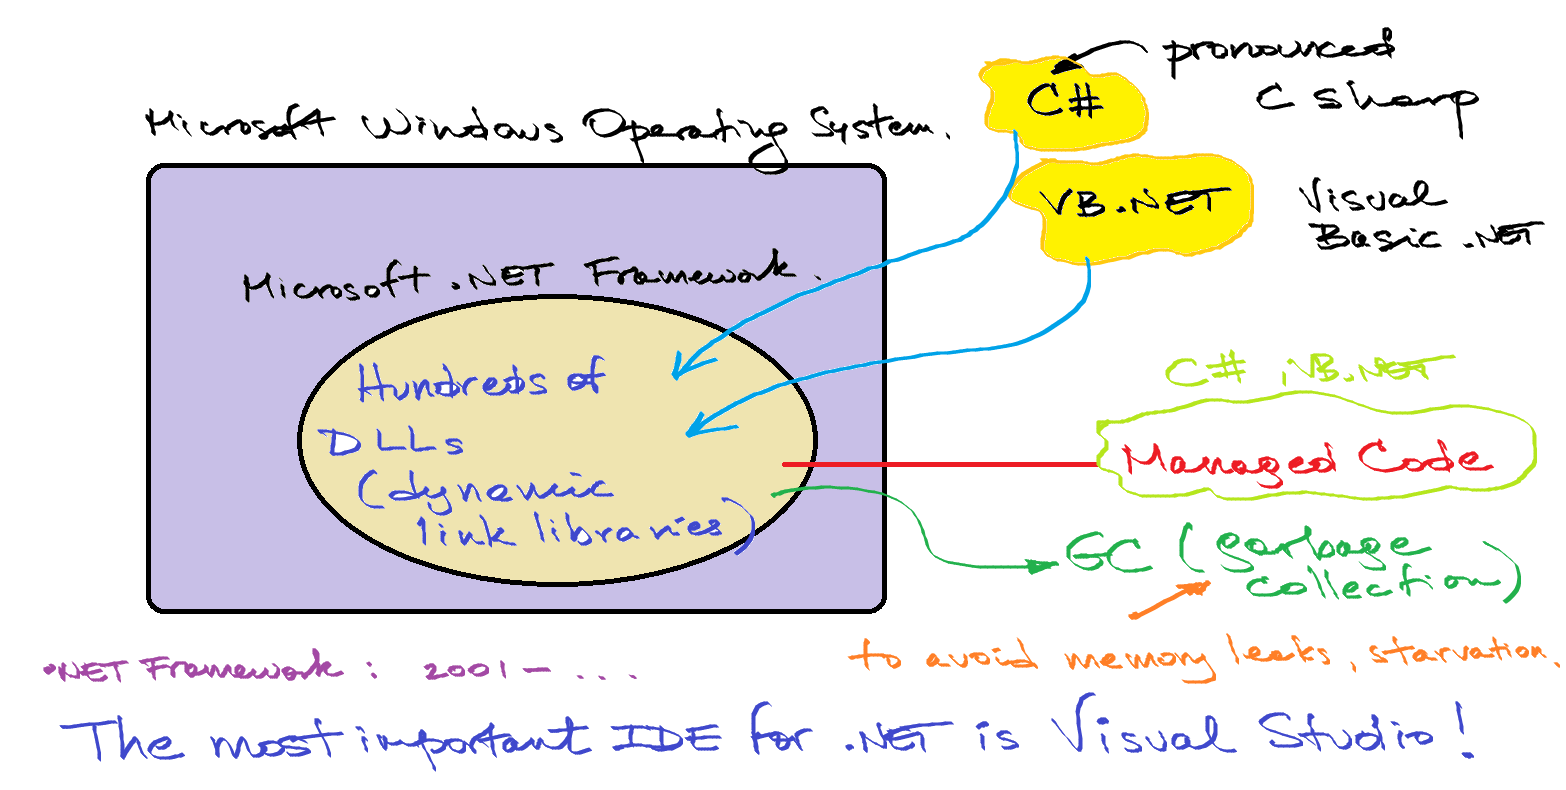 pronounced
C sharp
C#
Microsoft Windows Operating System.
VB.NET
Visual
Basic .NET
Microsoft .NET Framework.
Hundreds of
DLLs
(dynamic
link libraries)
C#, VB.NET
Managed Code
GC (garbage
collection)
to avoid memory leaks, starvation.
.NET Framework : 2001 - ...
The most important IDE for .NET is Visual Studio!